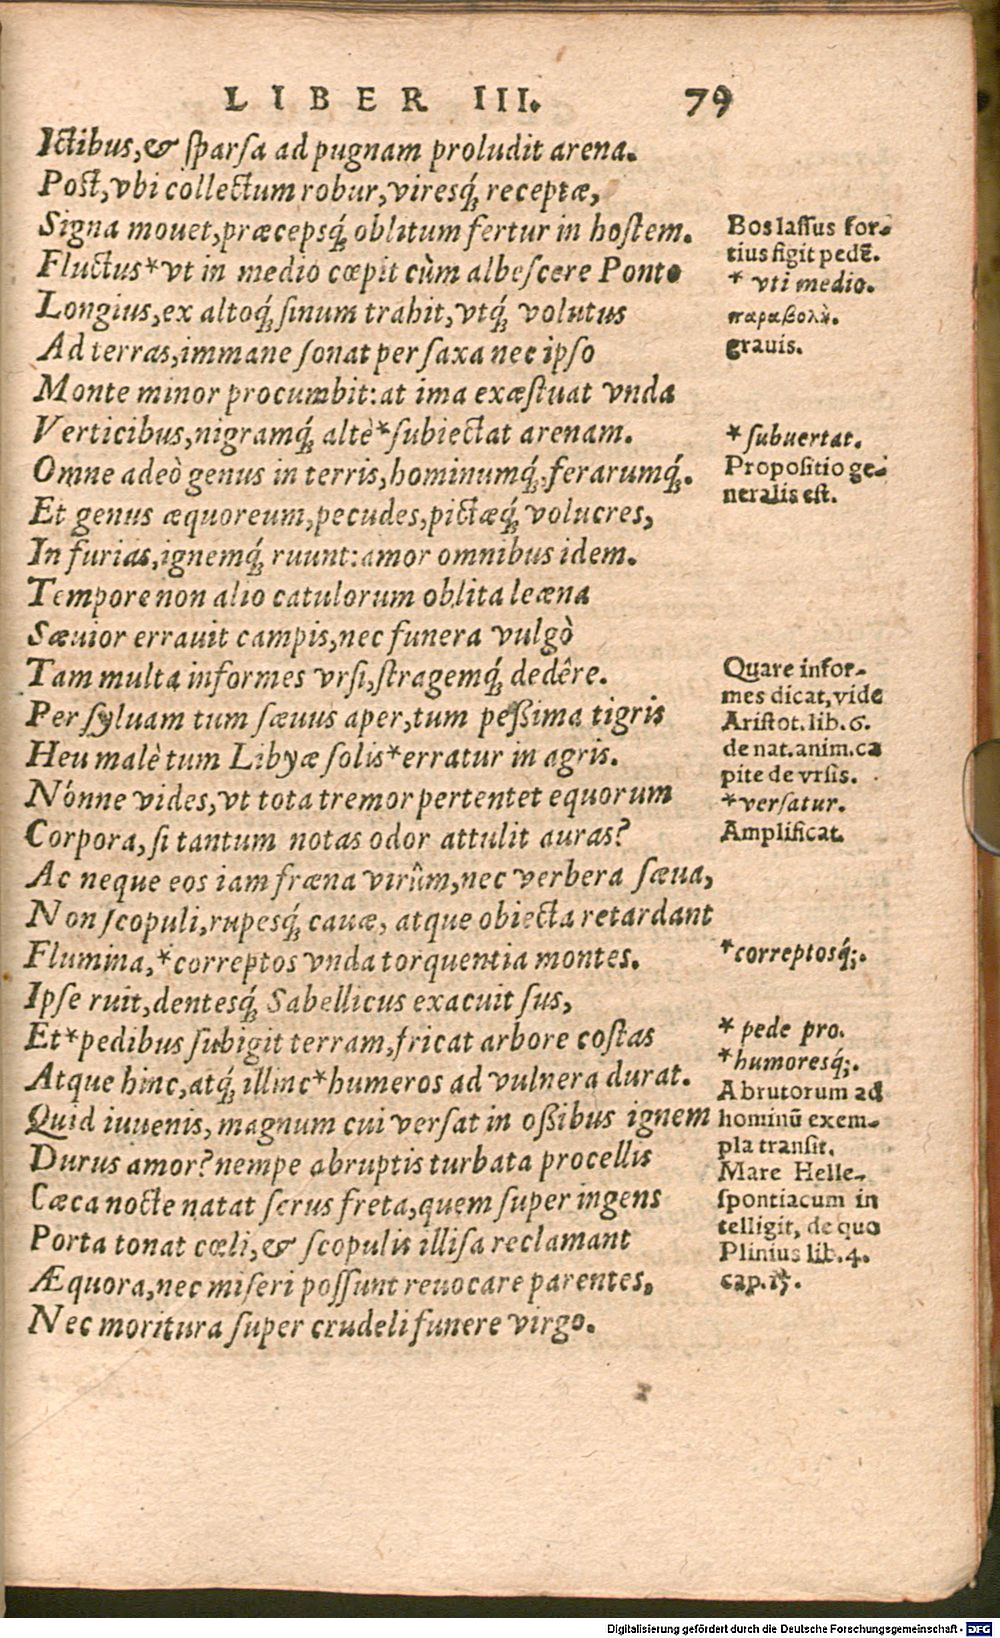 LIBER III. 79
Ictibus, & sparsa ad pugnam proludit arena.
Post, vbi collectum robur, viresq́; receptæ,
Signa mouet, præcepsq́; oblitum fertur in hostem.
Fluctus*vt in medio cœpit cùm albescere Ponto
Longius, ex altoq́; sinum trahit, vtq́; volutus
Ad terras, immane sonat per saxa nec ipso
Monte minor procumbit: at ima exæstuat vnda
Verticibus, nigramq́; altè*subiectat arenam.
Omne adeò genus in terris, hominumq́;, ferarumq́;.
Et genus æquoreum, pecudes, pictæq́; volucres,
In furias, ignemq́; ruunt: amor omnibus idem.
Tempore non alio catulorum oblita leæna
Sæuior errauit campis, nec funera vulgò
Tam multa informes vrsi, stragemq́; dedêre.
Per syluam tum sæuus aper, tum peßima tigris
Heu malè tum Libyæ solis*erratur in agris.
Nónne vides, vt tota tremor pertentet equorum
Corpora, si tantum notas odor attulit auras?
Ac neque eos iam fræna virûm, nec verbera sæua,
Non scopuli, rupesq́; cauæ, atque obiecta retardant
Flumina,*correptos vnda torquentia montes.
Ipse ruit, dentesq́; Sabellicus exacuit sus,
Et*pedibus subigit terram, fricat arbore costas
Atque hinc, atq́; illinc*humeros ad vulnera durat.
Quid iuuenis, magnum cui versat in oßibus ignem
Durus amor? nempe abruptis turbata procellis
Cæca nocte natat serus freta, quem super ingens
Porta tonat cœli, & scopulis illisa reclamant
Æquora, nec miseri possunt reuocare parentes,
Nec moritura super crudeli funere virgo.
Bos lassus for-
tius figit pedē.
* vti medio.
παραβολὴ.
grauis.
*subuertat.
Propositio ge-
neralis est.
Quare infor-
mes dicat, vide
Aristot. lib. 6.
de nat. anim. ca
pite de vrsis.
*versatur.
Amplificat.
*correptosq́;.
* pede pro.
*humoresq́;.
A brutorum ad
hominū exem-
pla transit.
Mare Helle-
spontiacum in
telligit, de quo
Plinius lib. 4.
cap. 15.
Digitalisierung gefördert durch die Deutsche Forschungsgemeinschaft - DFG